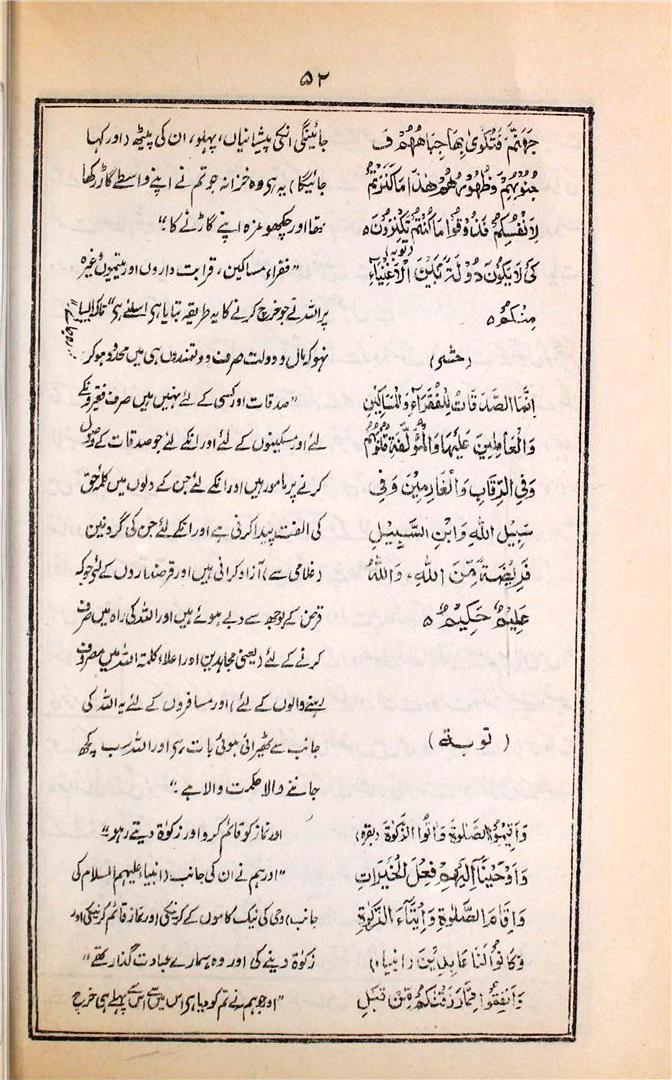 ۵۲
جَهَنَّمَ فَتُكْوٰى بِهَا جِبَاهُهُمْ وَ
جُنُوْبُهُمْ وَظُهُوْرُهُمْ هٰذَا مَا كَنَزْتُمْ
لِاَنْفُسِكُمْ فَذُوْقُوْا مَا كُنْتُمْ تَكْنِزُوْنَ ٥
(توبہ)
كَیْ لَا يَكُوْنَ دُوْلَةً بَيْنَ الْاَغْنِيَآءِ
مِنْكُمْ ٥
(حشر)
اِنَّمَا الصَّدَقَاتُ لِلْفُقَرَآءِ وَالْمَسَاكِيْنِ
وَالْعَامِلِيْنَ عَلَيْهَا وَالْمُؤَلَّفَةِ قُلُوْبُهُمْ
وَفِي الرِّقَابِ وَالْغَارِمِيْنَ وَفِيْ
سَبِيْلِ اللهِ وَابْنِ السَّبِيْلِ
فَرِيْضَةً مِّنَ اللهِ، وَاللهُ
عَلِيْمٌ حَكِيْمٌ ٥
(توبة)
وَاَقِيْمُوا الصَّلٰوةَ وَاٰتُوا الزَّكٰوةَ (بقرہ)
وَاَوْحَيْنَا اِلَيْهِمْ فِعْلَ الْخَيْرَاتِ
وَاِقَامَ الصَّلٰوةِ وَاِيْتَآءَ الزَّكٰوةِ
وَكَانُوْا لَنَا عَابِدِيْنَ (انبیاء)
وَاَنْفِقُوْا مِمَّا رَزَقْنٰكُمْ مِّنْ قَبْلِ
جائینگی انکی پیشانیاں، پہلو، ان کی پیٹھ (اور کہا
جائیگا) یہ ہی وہ خزانہ جو تم نے اپنے واسطے گاڑ رکھا
تھا اور چکھو مزہ اپنے گاڑنے کا۔"
"فقراء، مساکین، قرابت داروں اور یتیموں وغیرہ
پر اللہ نے جو خرچ کرنے کا یہ طریقہ بتایا ہی اسلئے ہی" تاکہ ایسا
نہو کہ مال و دولت صرف دولتمندوں ہی میں محدود ہو کر
"صدقات اور کسی کے لئے نہیں ہیں صرف فقیروں کے
لئے اور مسکینوں کے لئے اور انکے لئے جو صدقات کے وصول
کرنے پر مامور ہیں اور انکے لئے جن کے دلوں میں کلمۂ حق
کی الفت پیدا کرنی ہے اور انکے لئے جن کی گردنیں
(غلامی سے) آزاد کرانی ہیں اور قرضداروں کے لئے جو کہ
قرض کے بوجھ سے دبے ہوئے ہیں اور اللہ کی راہ میں صرف
کرنے کے لئے (یعنی مجاہدین اور اعلاء کلمۃ اللہ میں مصروف
رہنے والوں کے لئے) اور مسافروں کے لئے یہ اللہ کی
جانب سے ٹھیرائی ہوئی بات ہی اور اللہ سب کچھ
جاننے والا حکمت والا ہے۔"
اور نماز کو قائم کرو اور زکوٰۃ دیتے رہو"
"اور ہم نے ان کی جانب (انبیاء علیہم السلام کی
جانب) وحی کی نیک کاموں کے کرنیکی اور نماز قائم کرنیکی اور
زکوٰۃ دینے کی اور وہ ہمارے عبادت گذار تھے"
"اور جو ہم نے تم کو دیا ہی اس میں سے اس سے پہلے ہی خرچ